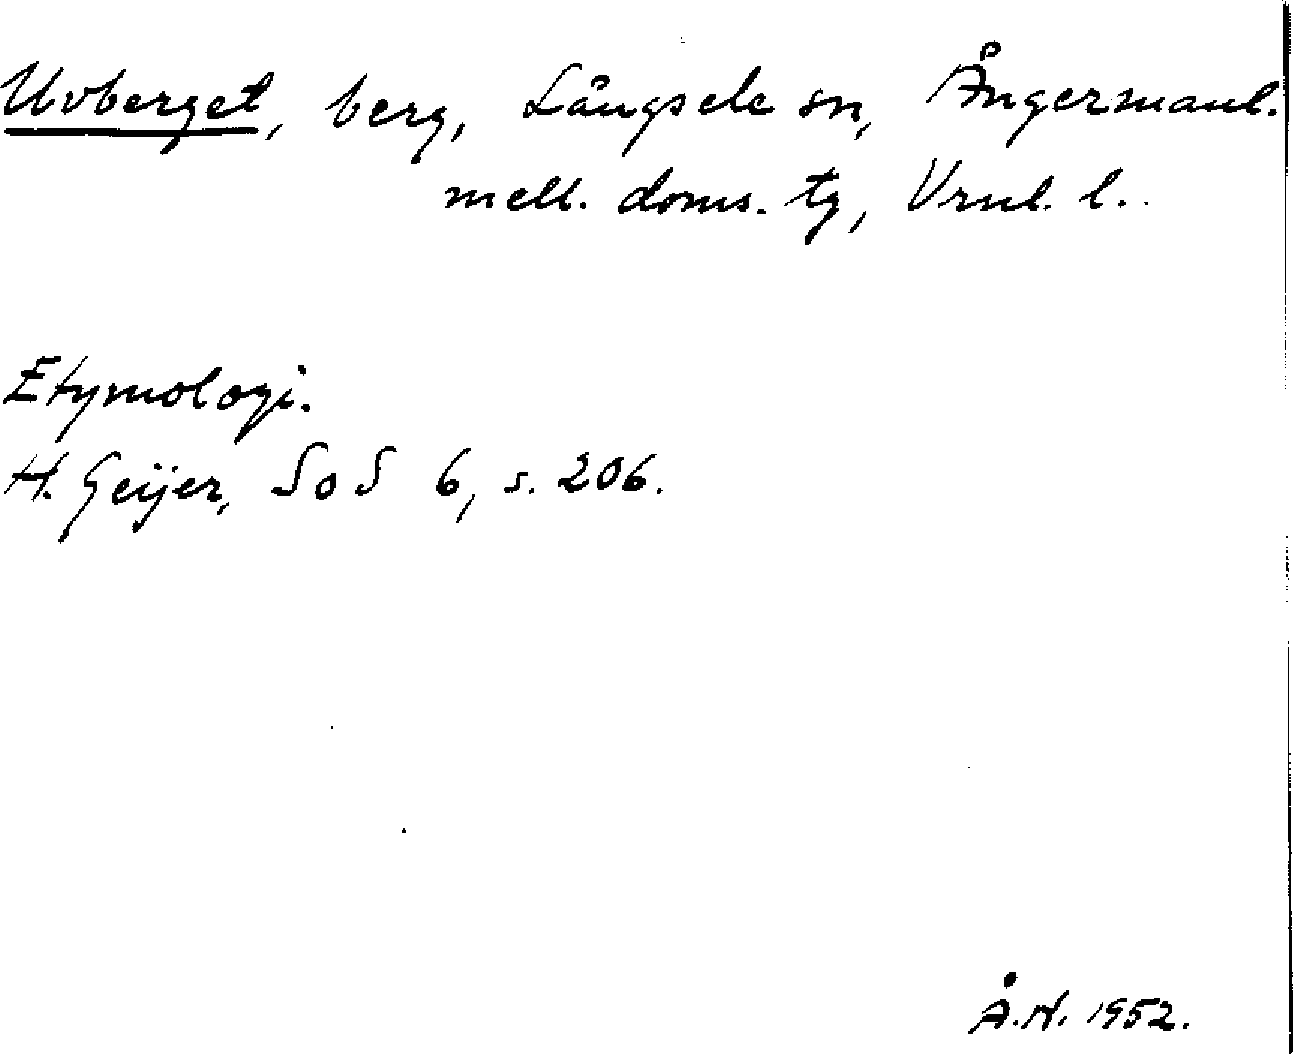 Uvberget, berg, Långsele sn, Ångermanl.
mell. doms. tg, Vrnl. l.
Etymologi.
H. Geijer, SoS 6, s. 206.
Å.H. 1952.